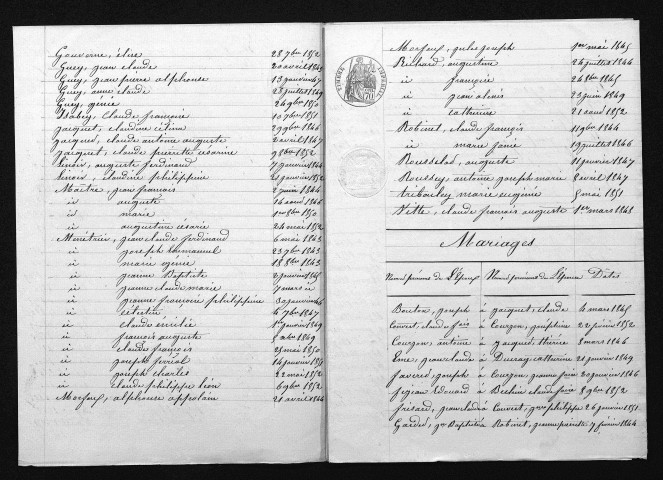 Gouverne, élise 28 7bre 1852
Guey, jean claude 20 avril 1843
Guey, jean pierre alphonse 13 janvier 1847
Guey, anne claude 28 juillet 1849
Guy, génie 24 9bre 1850
Isabey, claude françois 10 7bre 1851
jacquet, claudine célina 29 9bre 1844
jacquard, claude antoine auguste 2 avril 1847
jacquet, claude pierrette césarine 9 8bre 1852
Lenoir, auguste ferdinand 7 janvier 1844
Lenoir, claudine philippine
Maître, jean françois 2 juin 1844
id auguste 16 aout 1846
id marie 1er 8bre 1850
id augustine césarie 24 mai 1852
Menétrier, jean claude ferdinand 6 mai 1843
id joseph emmanuel 23 7bre 1843
id marie ogénie 18 8bre 1843
id jeanne Baptiste 2 janvier 1845
id jeanne claude marie 7 mars id
id jeanne françoise philippine 30 janvier 1846
id célestine 4 7bre 1847
id claude émilie 1er janvier 1849
id françois auguste 5 1849
id claude françois 25 mai 1850
id joseph ferréol
id joseph charles 22 mai 1852
id claude philippe léon 6 9bre 1852
alphonse appolain 21 avril 1844
julie joseph 1er mai 1845
Richard, augustine 24 juillet 1844
id françoise 24 8bre 1845
id jean alexis 23 juin 1849
id catherine 21 aout 1852
Robinet, claude françois 11 9bre 1844
id marie 19 juillet 1846
Rousselot, auguste 11 janvier 1847
Roussey antoine joseph marie 8 avril 1847
tribouley marie eugénie 5 mai 1851
Vitte, claude françois auguste 1er mars 1848
Mariages
Noms prénoms de l'Époux Noms prénoms de l'Épouse Dates
Bouton, joseph à jacquet, claude 4 mars 1845
Couvert, claude fois à Courzon, joséphine 22 février 1852
Courzon antoine à jacquet, thérèse 3 mars 1846
jean claude à Ducray catherine 21 janvier 1849
joseph à Courzon jeanne 20 janvier 1846
Edouard à claude 8 9bre 1852
jean claude à Couvert, philippe 26 janvier 1851
Baptiste à Robinet, jeanne pierrette 7 février 1844